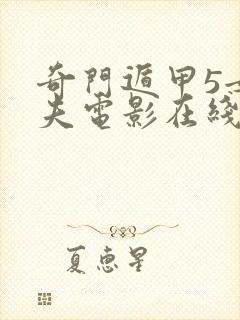 奇門遁甲5
夫電影在綫
夏惠星